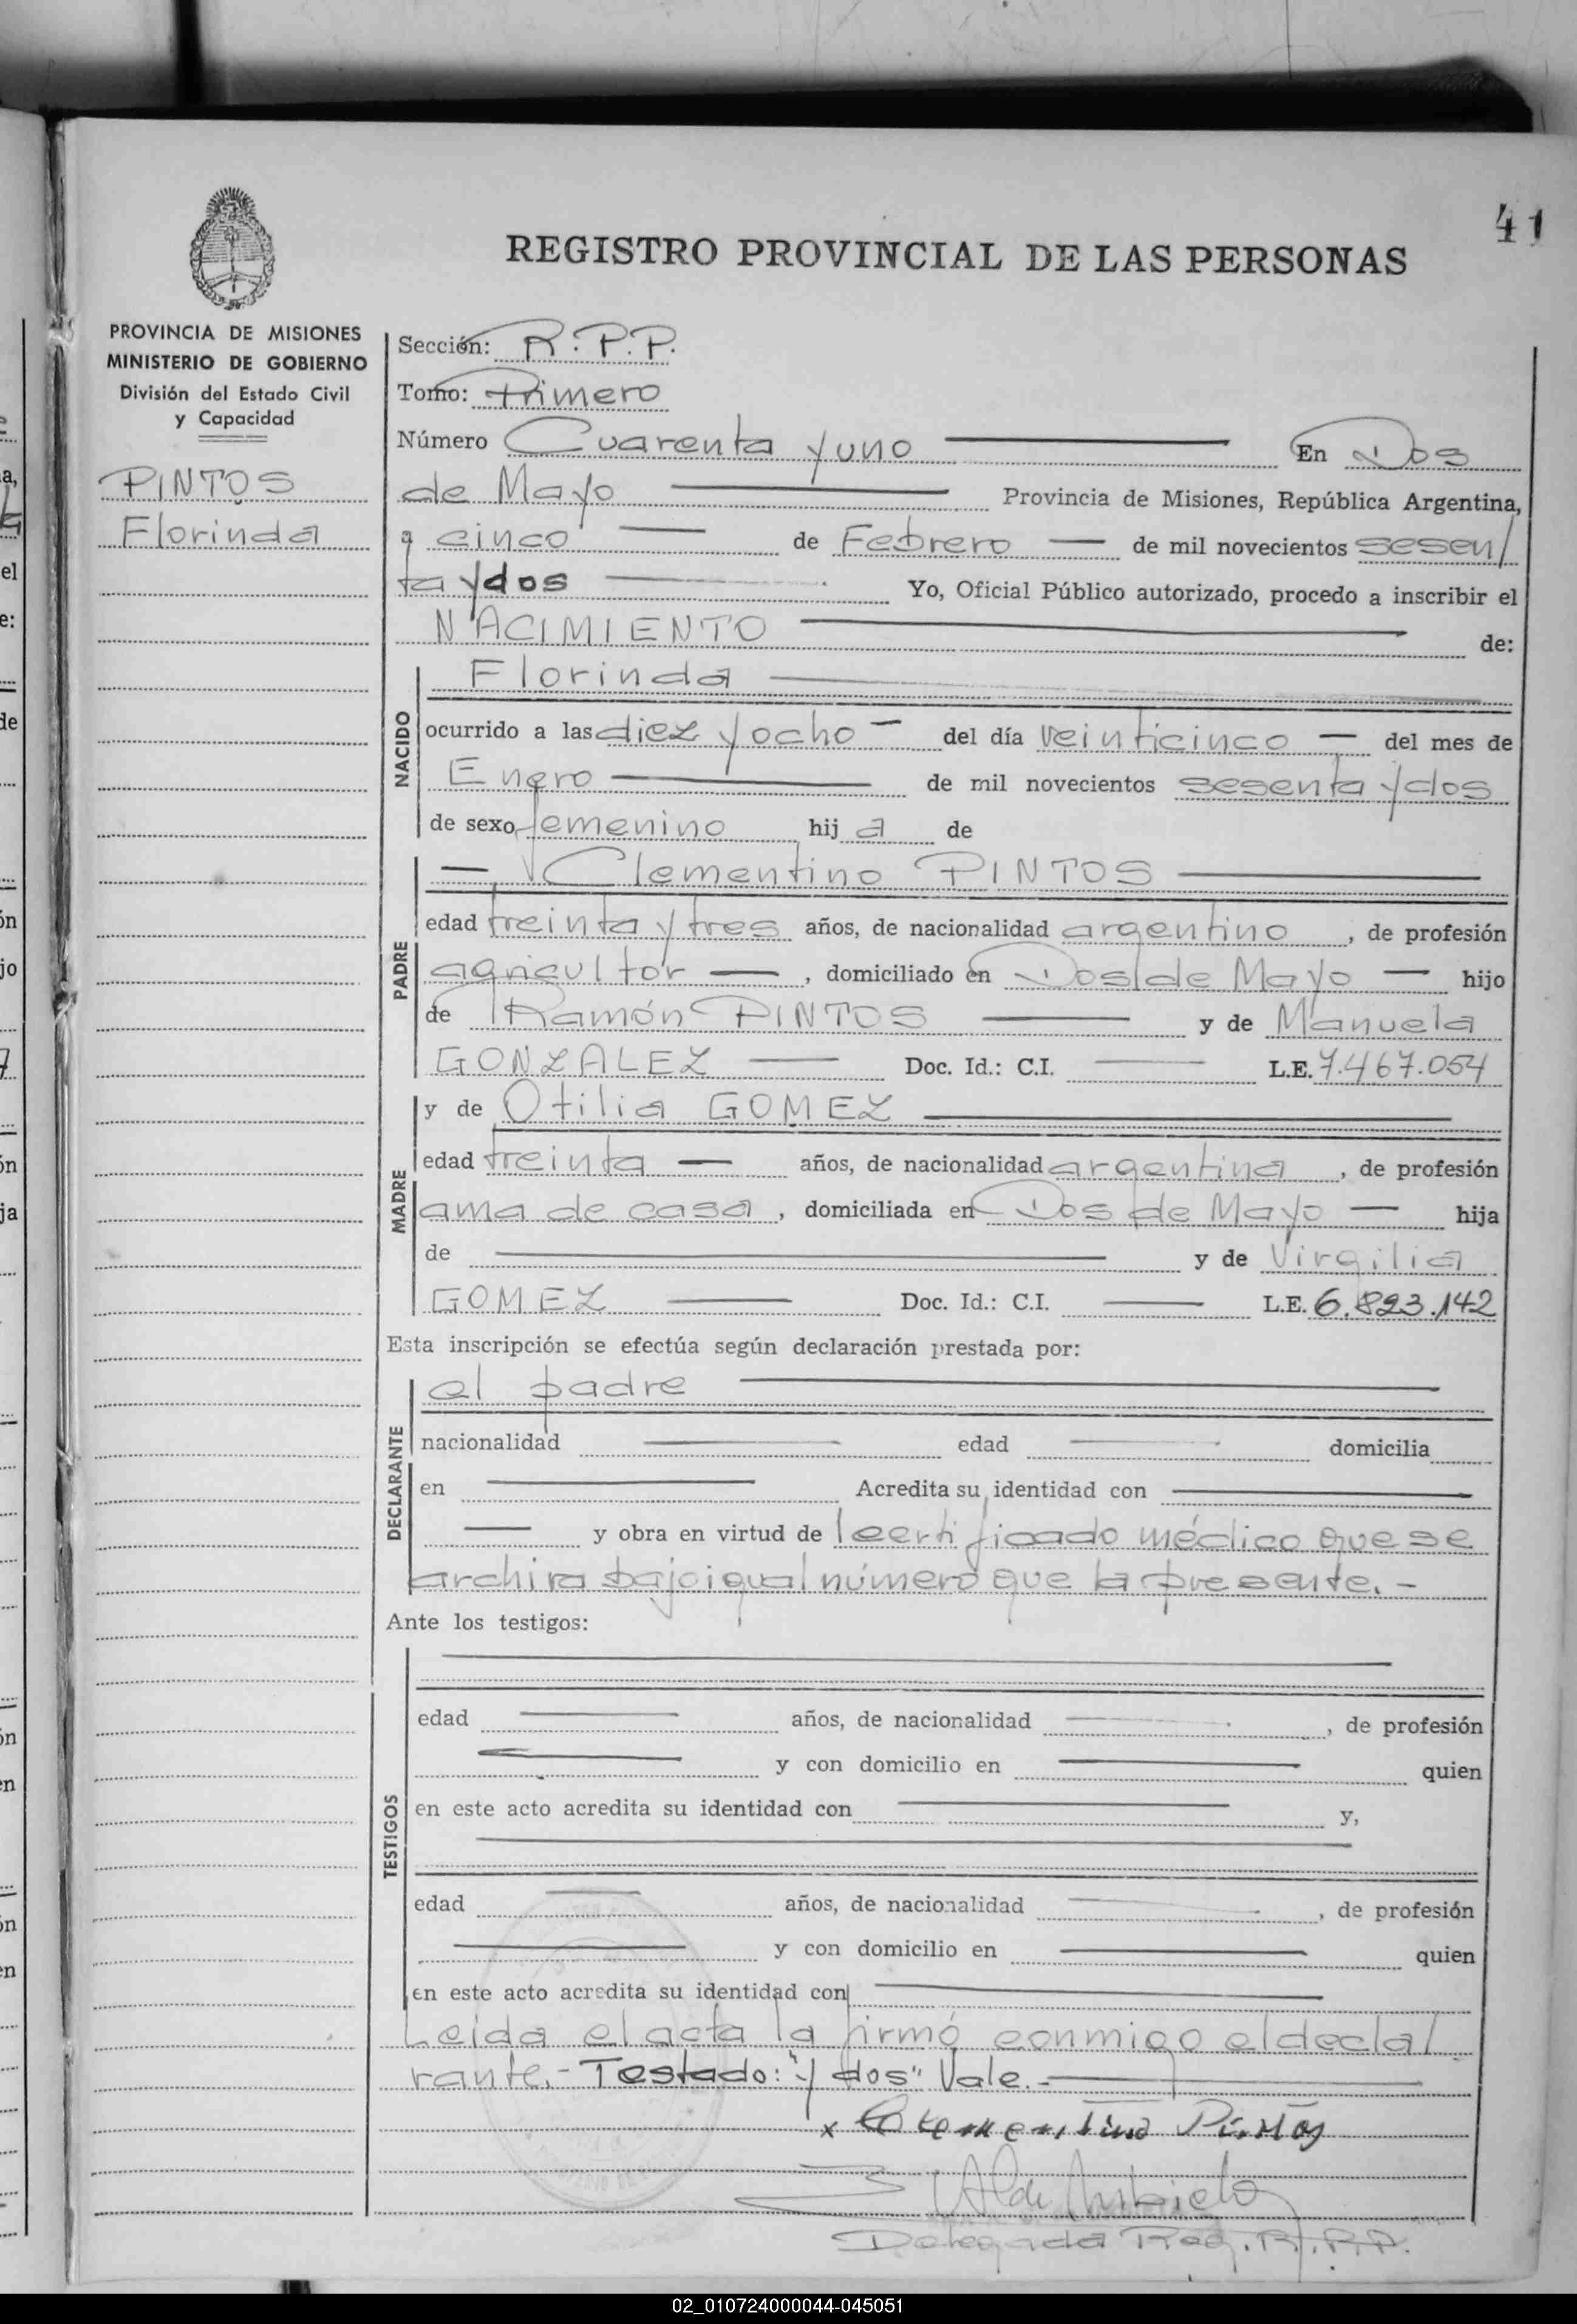 41
REGISTRO PROVINCIAL DE LAS PERSONAS
PROVINCIA DE MISIONES
MINISTERIO DE GOBIERNO
División del Estado Civil
y Capacidad
PINTOS
Florinda
Sección: R.P.P.
Tomo: Primero
Número Cuarenta y uno En Dos
de Mayo Provincia de Misiones, República Argentina,
a cinco de Febrero de mil novecientos sesen/
ta y dos Yo, Oficial Público autorizado, procedo a inscribir el
NACIMIENTO de:
NACIDO
Florinda
ocurrido a las diez y ocho del día veinticinco del mes de
Enero de mil novecientos sesenta y dos
de sexo femenino hija de
PADRE
Clementino PINTOS
edad treinta y tres años, de nacionalidad argentino, de profesión
agricultor, domiciliado en Dos de Mayo hijo
de Ramón PINTOS y de Manuela
GONZALEZ Doc. Id.: C.I. L.E. 7.467.054
MADRE
y de Otilia GOMEZ
edad treinta años, de nacionalidad argentina, de profesión
ama de casa, domiciliada en Dos de Mayo hija
de y de Virgilia
GOMEZ Doc. Id.: C.I. L.E. 6.823.142
Esta inscripción se efectúa según declaración prestada por:
DECLARANTE
el padre
nacionalidad edad domicilia
en Acredita su identidad con
y obra en virtud de certificado médico que se
archiva bajo igual número que la presente.-
Ante los testigos:
TESTIGOS
edad años, de nacionalidad , de profesión
y con domicilio en quien
en este acto acredita su identidad con y,
edad años, de nacionalidad , de profesión
y con domicilio en quien
en este acto acredita su identidad con
Leida el acta la firmó conmigo el decla/
rante.- Testado: "y dos" Vale.-
x Clementino Pintos
Delegada Reg. R.P.P.
02_010724000044-045051